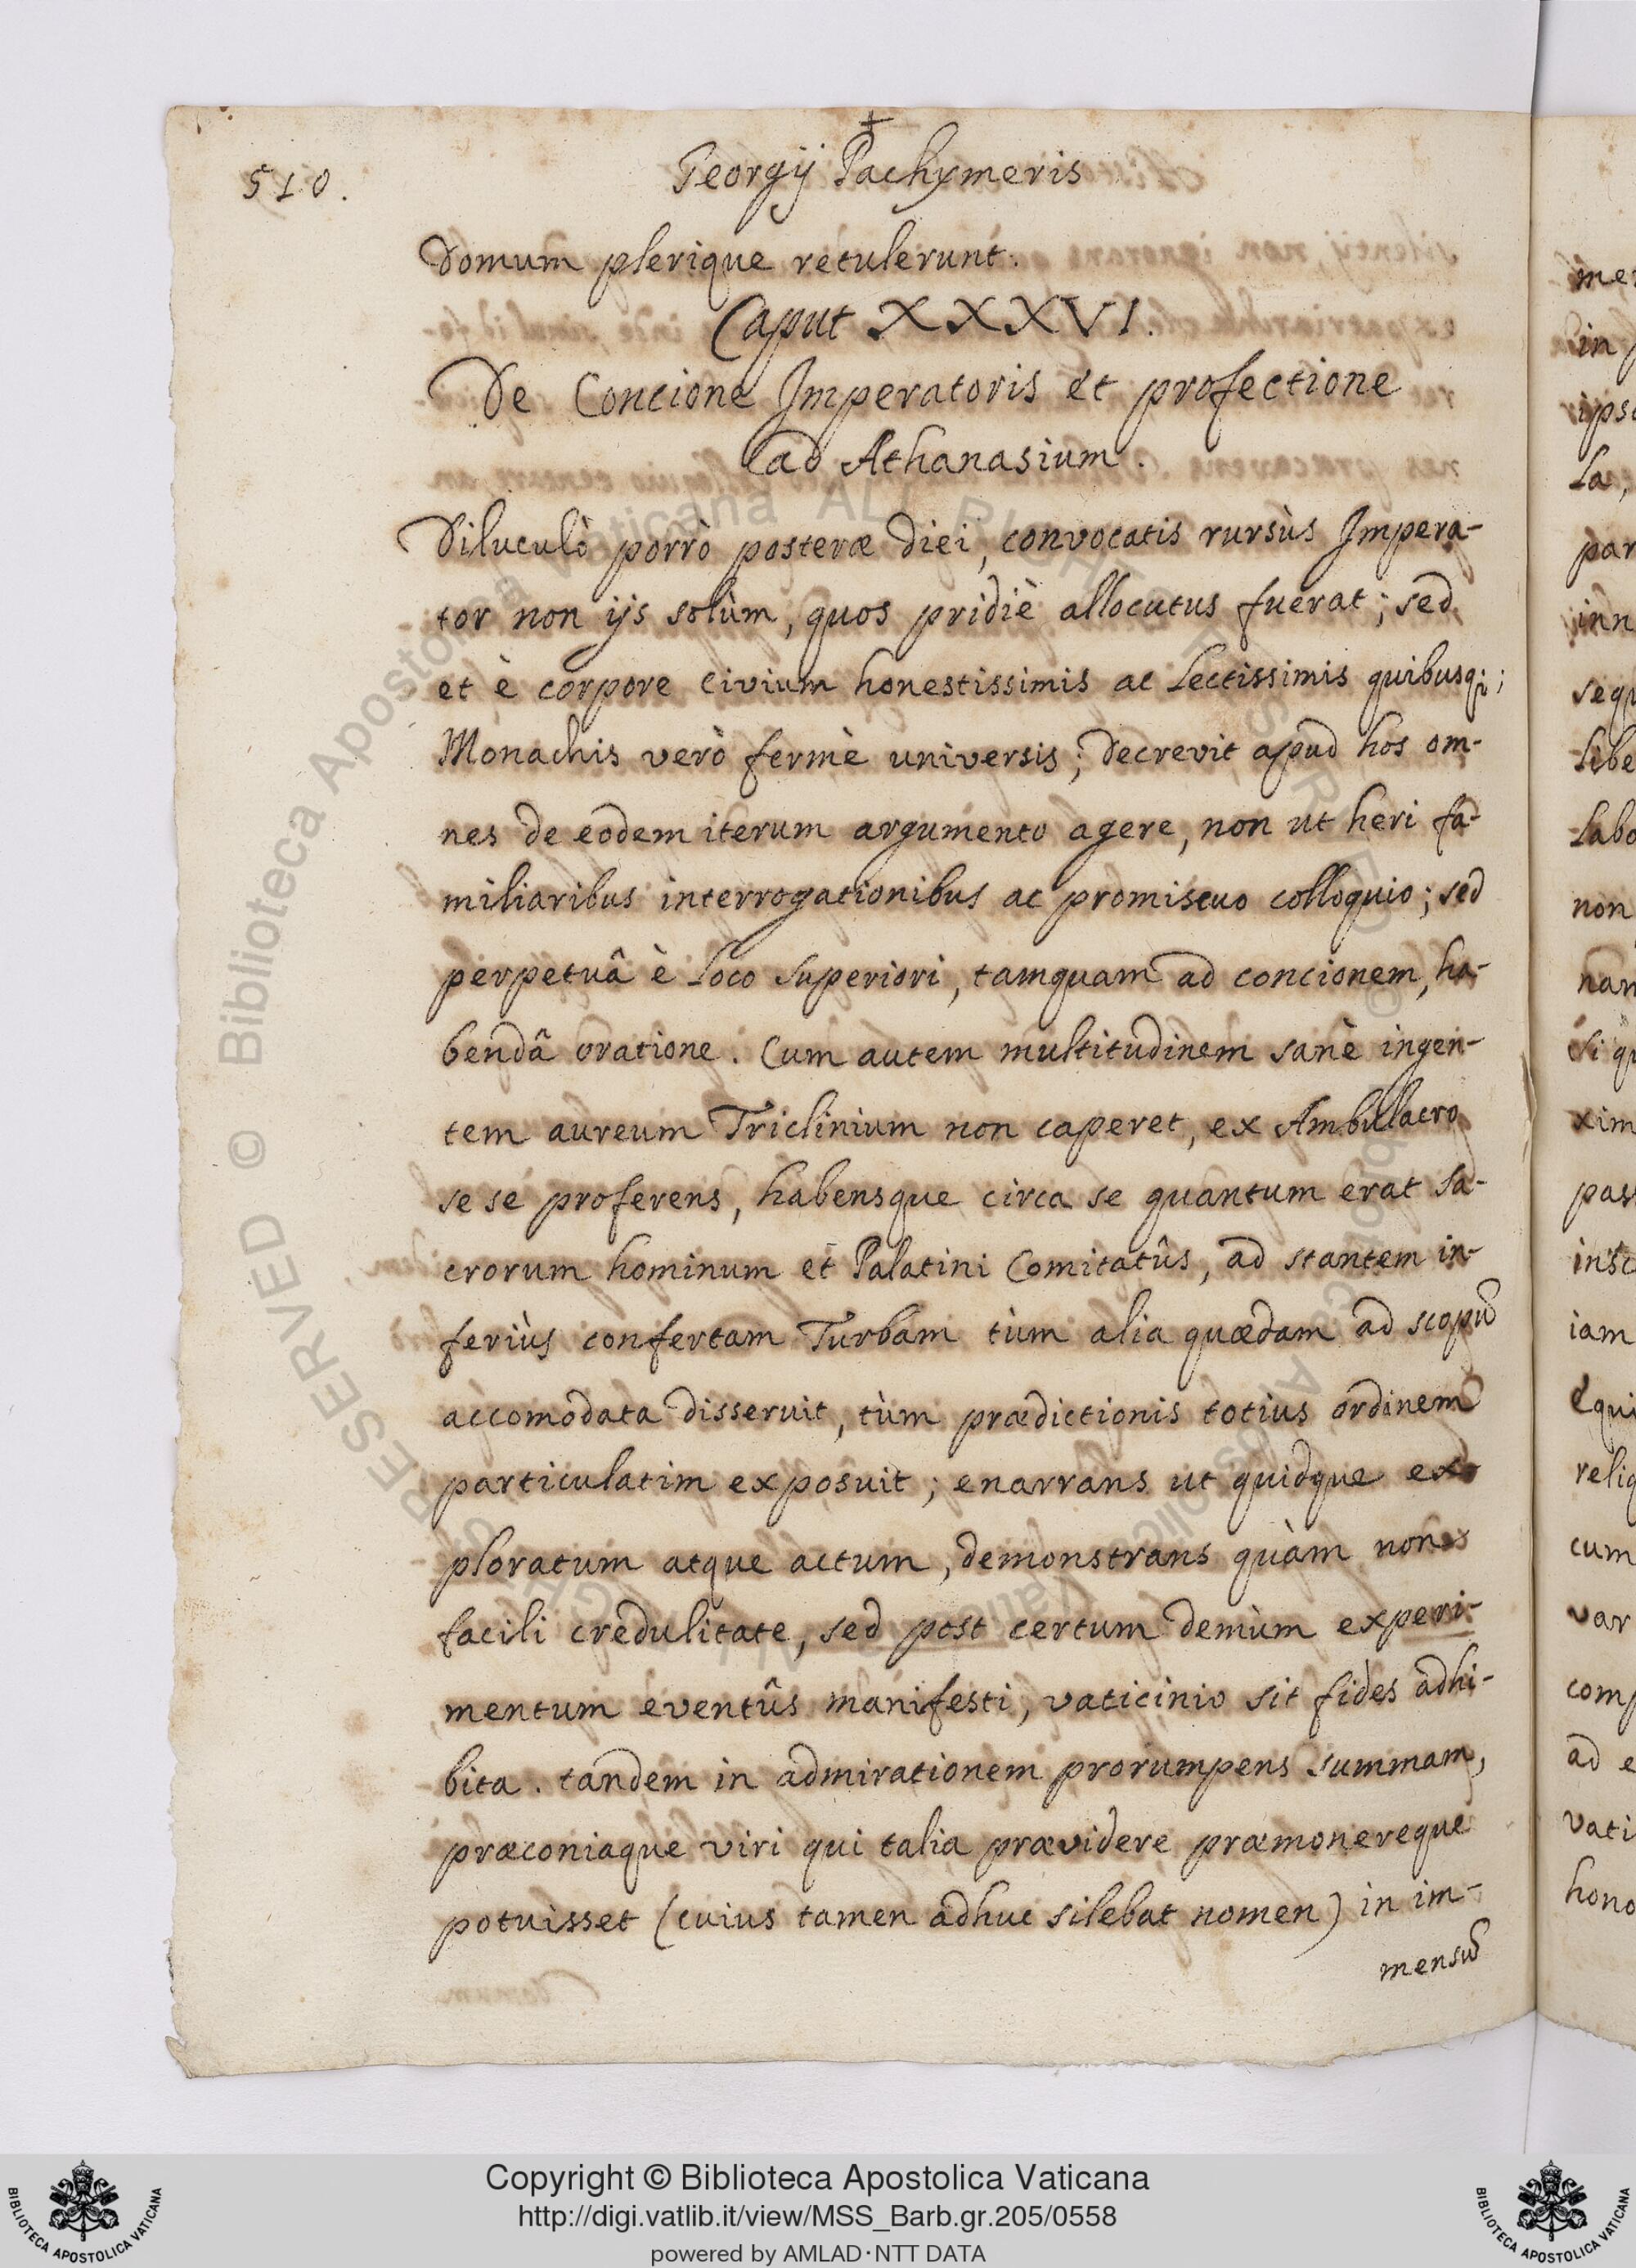 510.
Georgij Pachymeris
Domum plerique retulerunt.
Caput XXXVI.
De Concione Imperatoris et profectione
ad Athanasium.
Diluculò porrò posteræ diei, convocatis rursùs Impera-
tor non ijs solùm, quos pridiè allocutus fuerat; sed
et è corpore Civium honestissimis ac Lectissimis quibusq;;
Monachis verò fermè universis; decrevit apud hos om-
nes de eodem iterum argumento agere, non ut heri fa-
miliaribus interrogationibus ac promiscuo colloquio; sed
perpetuâ è Loco superiori, tamquam ad concionem, ha-
bendâ oratione. Cum autem multitudinem sanè ingen-
tem aureum Triclinium non caperet, ex Ambulacro
se se proferens, habensque circa se quantum erat sa-
crorum hominum et Palatini Comitatûs, ad stantem in-
feriùs confertam Turbam tùm alia quædam ad scopũ
accomodata disseruit, tùm prædictionis totius ordinem
particulatim exposuit; enarrans ut quidque ex
ploratum atque actum, demonstrans quàm non
facili credulitate, sed post certum demùm experi-
mentum eventûs manifesti, vaticinio sit fides adhi-
bita. tandem in admirationem prorumpens summam,
præconiaque viri qui talia prævidere præmonereque
potuisset (cuius tamen adhuc silebat nomen) in im-
mensũ
mer
in
ipsi
La,
par
inn
sequ
Libe
Labo
non
nan
si qu
xim
pass
insc
iam
equi
reliq
cum
var
comp
ad e
vati
hono
© Biblioteca Apostolica Vaticana ALL RIGHTS RESERVED
Copyright © Biblioteca Apostolica Vaticana
http://digi.vatlib.it/view/MSS_Barb.gr.205/0558
powered by AMLAD·NTT DATA
BIBLIOTECA APOSTOLICA VATICANA
BIBLIOTECA APOSTOLICA VATICANA